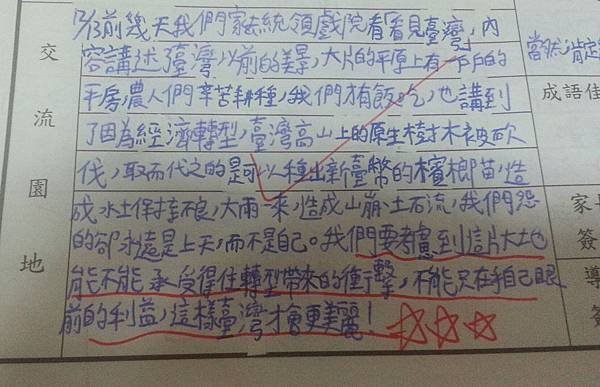 12/3前幾天我們家去統領戲院看看見臺灣,內
容講述了臺灣以前的美景,大片的平原上有一戶戶的
平房,農人們辛苦耕種,我們才有飯吃,也講到
了因為經濟轉型,臺灣高山上的原生樹木被砍
伐,取而代之的是可以種出新臺幣的檳榔苗,造
成水土保持不良,大雨一來,造成山崩、土石流,我們怨
的卻永遠是上天,而不是自己。我們要考慮到這片大地
能不能承受得住轉型帶來的衝擊,不能只在乎自己眼
前的利益,這樣臺灣才會更美麗!
交流園地
當然,肯定
成語佳
家
簽
導
簽